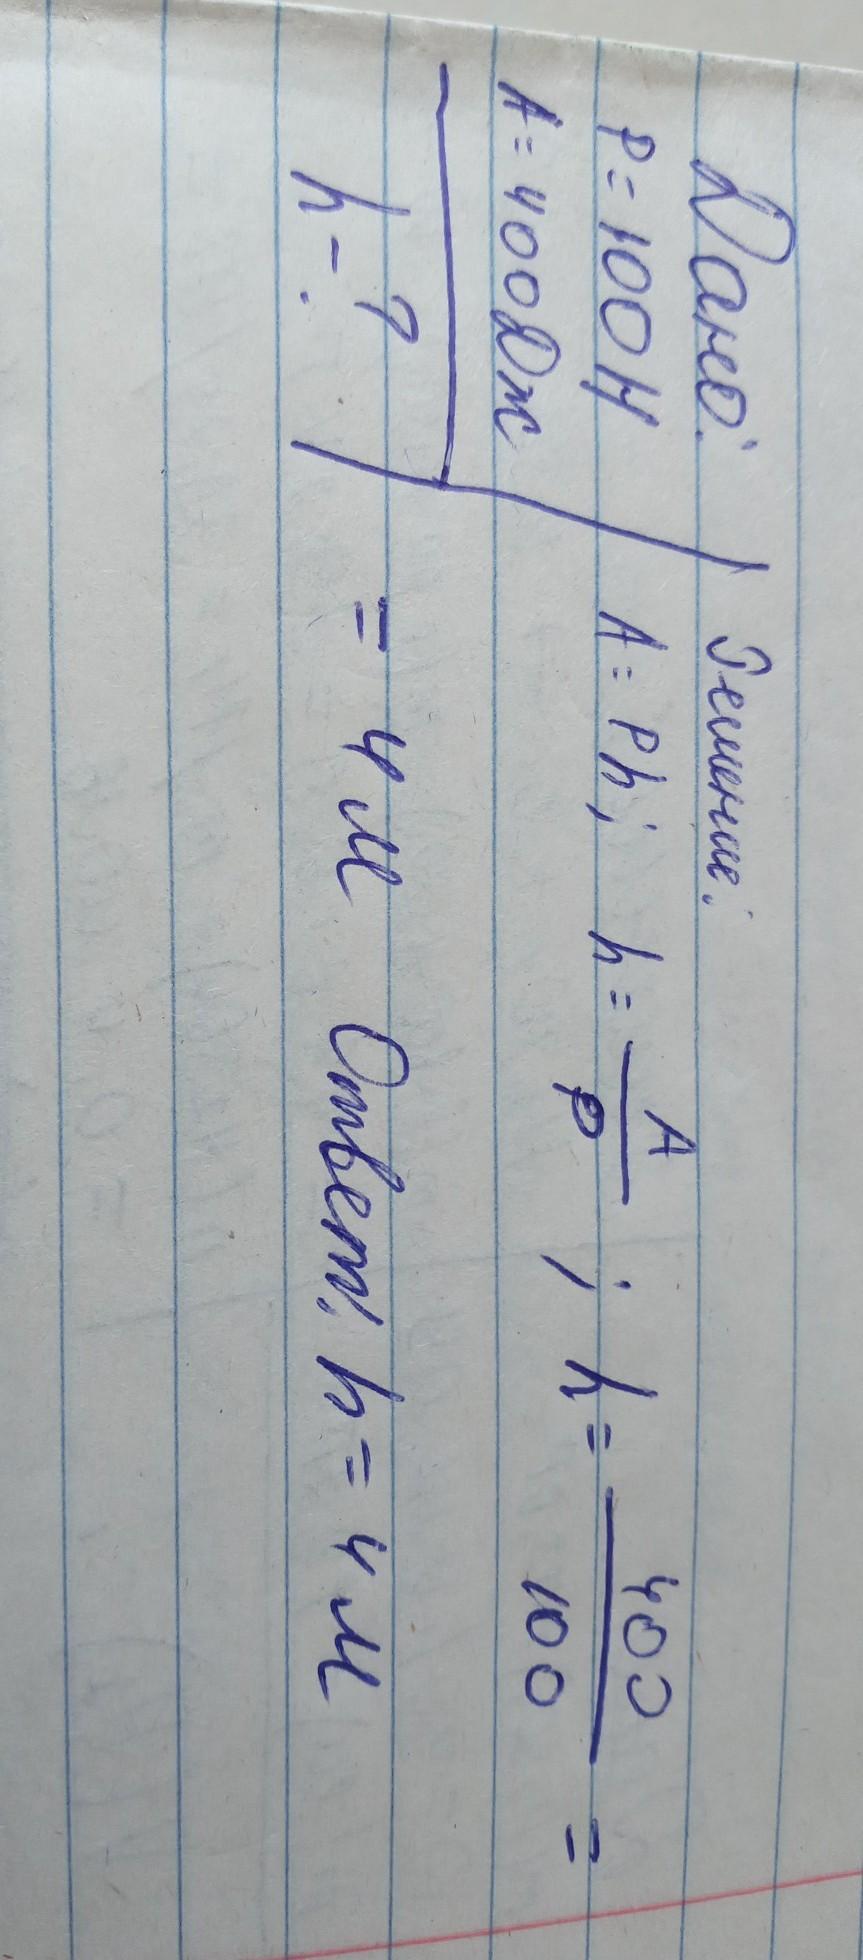 Дано:
P = 100 Н
A = 400 Дж
h - ?
Решение:
A = Ph; h = A/P ; h = 400/100 =
= 4 м Ответ: h = 4 м